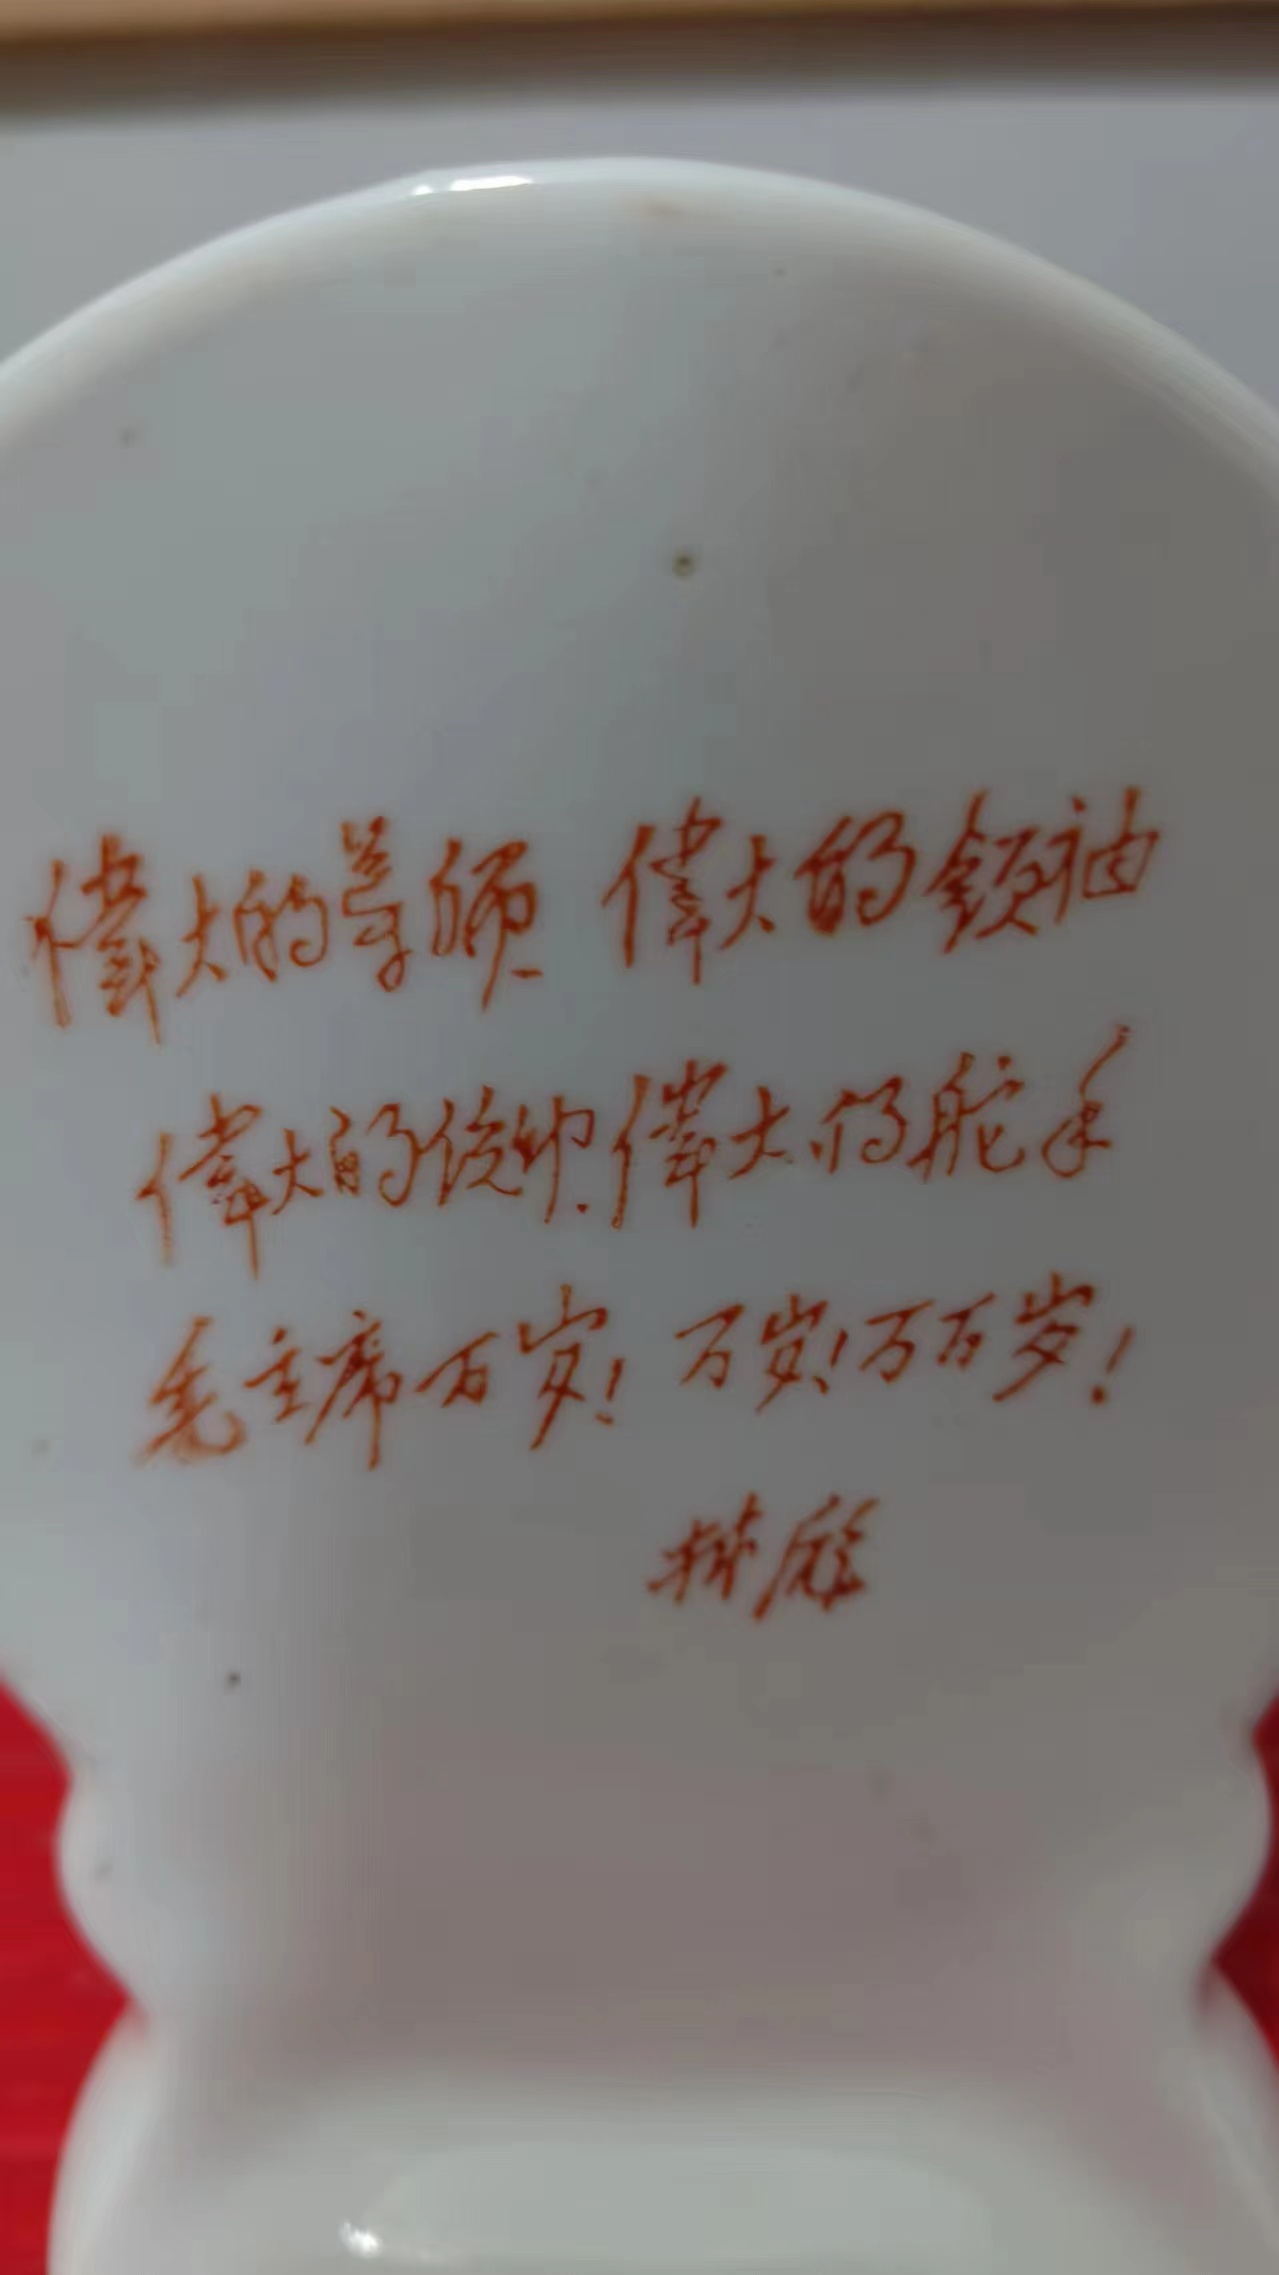 偉大的导师 偉大的领袖
偉大的统帅.偉大的舵手
毛主席万岁！万岁！万万岁！
林彪